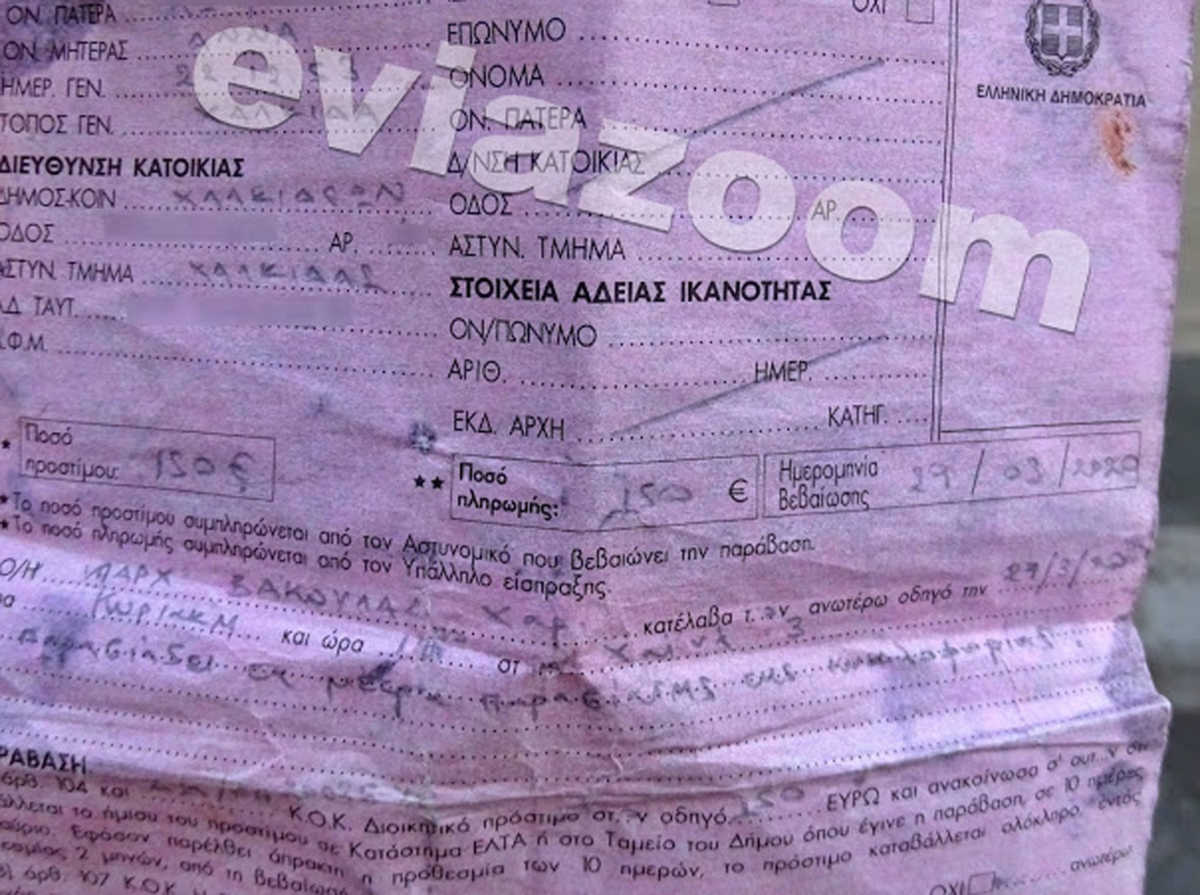 ΟΝ. ΠΑΤΕΡΑ
ΟΝ. ΜΗΤΕΡΑΣ ΑΝΝΑ
ΗΜΕΡ. ΓΕΝ.
ΤΟΠΟΣ ΓΕΝ.
ΔΙΕΥΘΥΝΣΗ ΚΑΤΟΙΚΙΑΣ
ΔΗΜΟΣ-ΚΟΙΝ ΧΑΛΚΙΔΕΩΝ
ΟΔΟΣ ΑΡ.
ΑΣΤΥΝ. ΤΜΗΜΑ ΧΑΛΚΙΔΑΣ
ΑΔ ΤΑΥΤ.
Α.Φ.Μ.
ΟΧΙ
ΕΠΩΝΥΜΟ
ΟΝΟΜΑ
ΟΝ. ΠΑΤΕΡΑ
Δ/ΝΣΗ ΚΑΤΟΙΚΙΑΣ
ΟΔΟΣ ΑΡ.
ΑΣΤΥΝ. ΤΜΗΜΑ
ΣΤΟΙΧΕΙΑ ΑΔΕΙΑΣ ΙΚΑΝΟΤΗΤΑΣ
ΟΝ/ΠΩΝΥΜΟ
ΑΡΙΘ. ΗΜΕΡ.
ΕΚΔ. ΑΡΧΗ ΚΑΤΗΓ.
ΕΛΛΗΝΙΚΗ ΔΗΜΟΚΡΑΤΙΑ
eviazoom
* Ποσό
προστίμου: 150 €
** Ποσό
πληρωμής: 150 €
Ημερομηνία
Βεβαίωσης 29/03/2020
*Το ποσό προστίμου συμπληρώνεται από τον Αστυνομικό που βεβαιώνει την παράβαση.
*Το ποσό πληρωμής συμπληρώνεται από τον Υπάλληλο είσπραξης
Ο/Η ΒΑΚΟΥΛΑΣ Χαρ κατέλαβα τ..ον ανωτέρω οδηγό την 29/3/20
Κυριακή και ώρα στ
παραβιάζει τα μέτρα της κυκλοφορίας
ΡΑΒΑΣΗ
άρθ. 104 και Κ.Ο.Κ. Διοικητικό πρόστιμο στ..ν οδηγό 150 ΕΥΡΩ και ανακοίνωσα σ' αυτ..ν ότι
άλλεται το ήμισυ του προστίμου σε Κατάστημα ΕΛΤΑ ή στο Ταμείο του Δήμου όπου έγινε η παράβαση, σε 10 ημέρες
Εφόσον παρέλθει άπρακτη η προθεσμία των 10 ημερών, το πρόστιμο καταβάλλεται ολόκληρο, εντός
2 μηνών, από τη βεβαίω
άρθ. 107 Κ.Ο.Κ. ΟΧΙ ανωτέρω